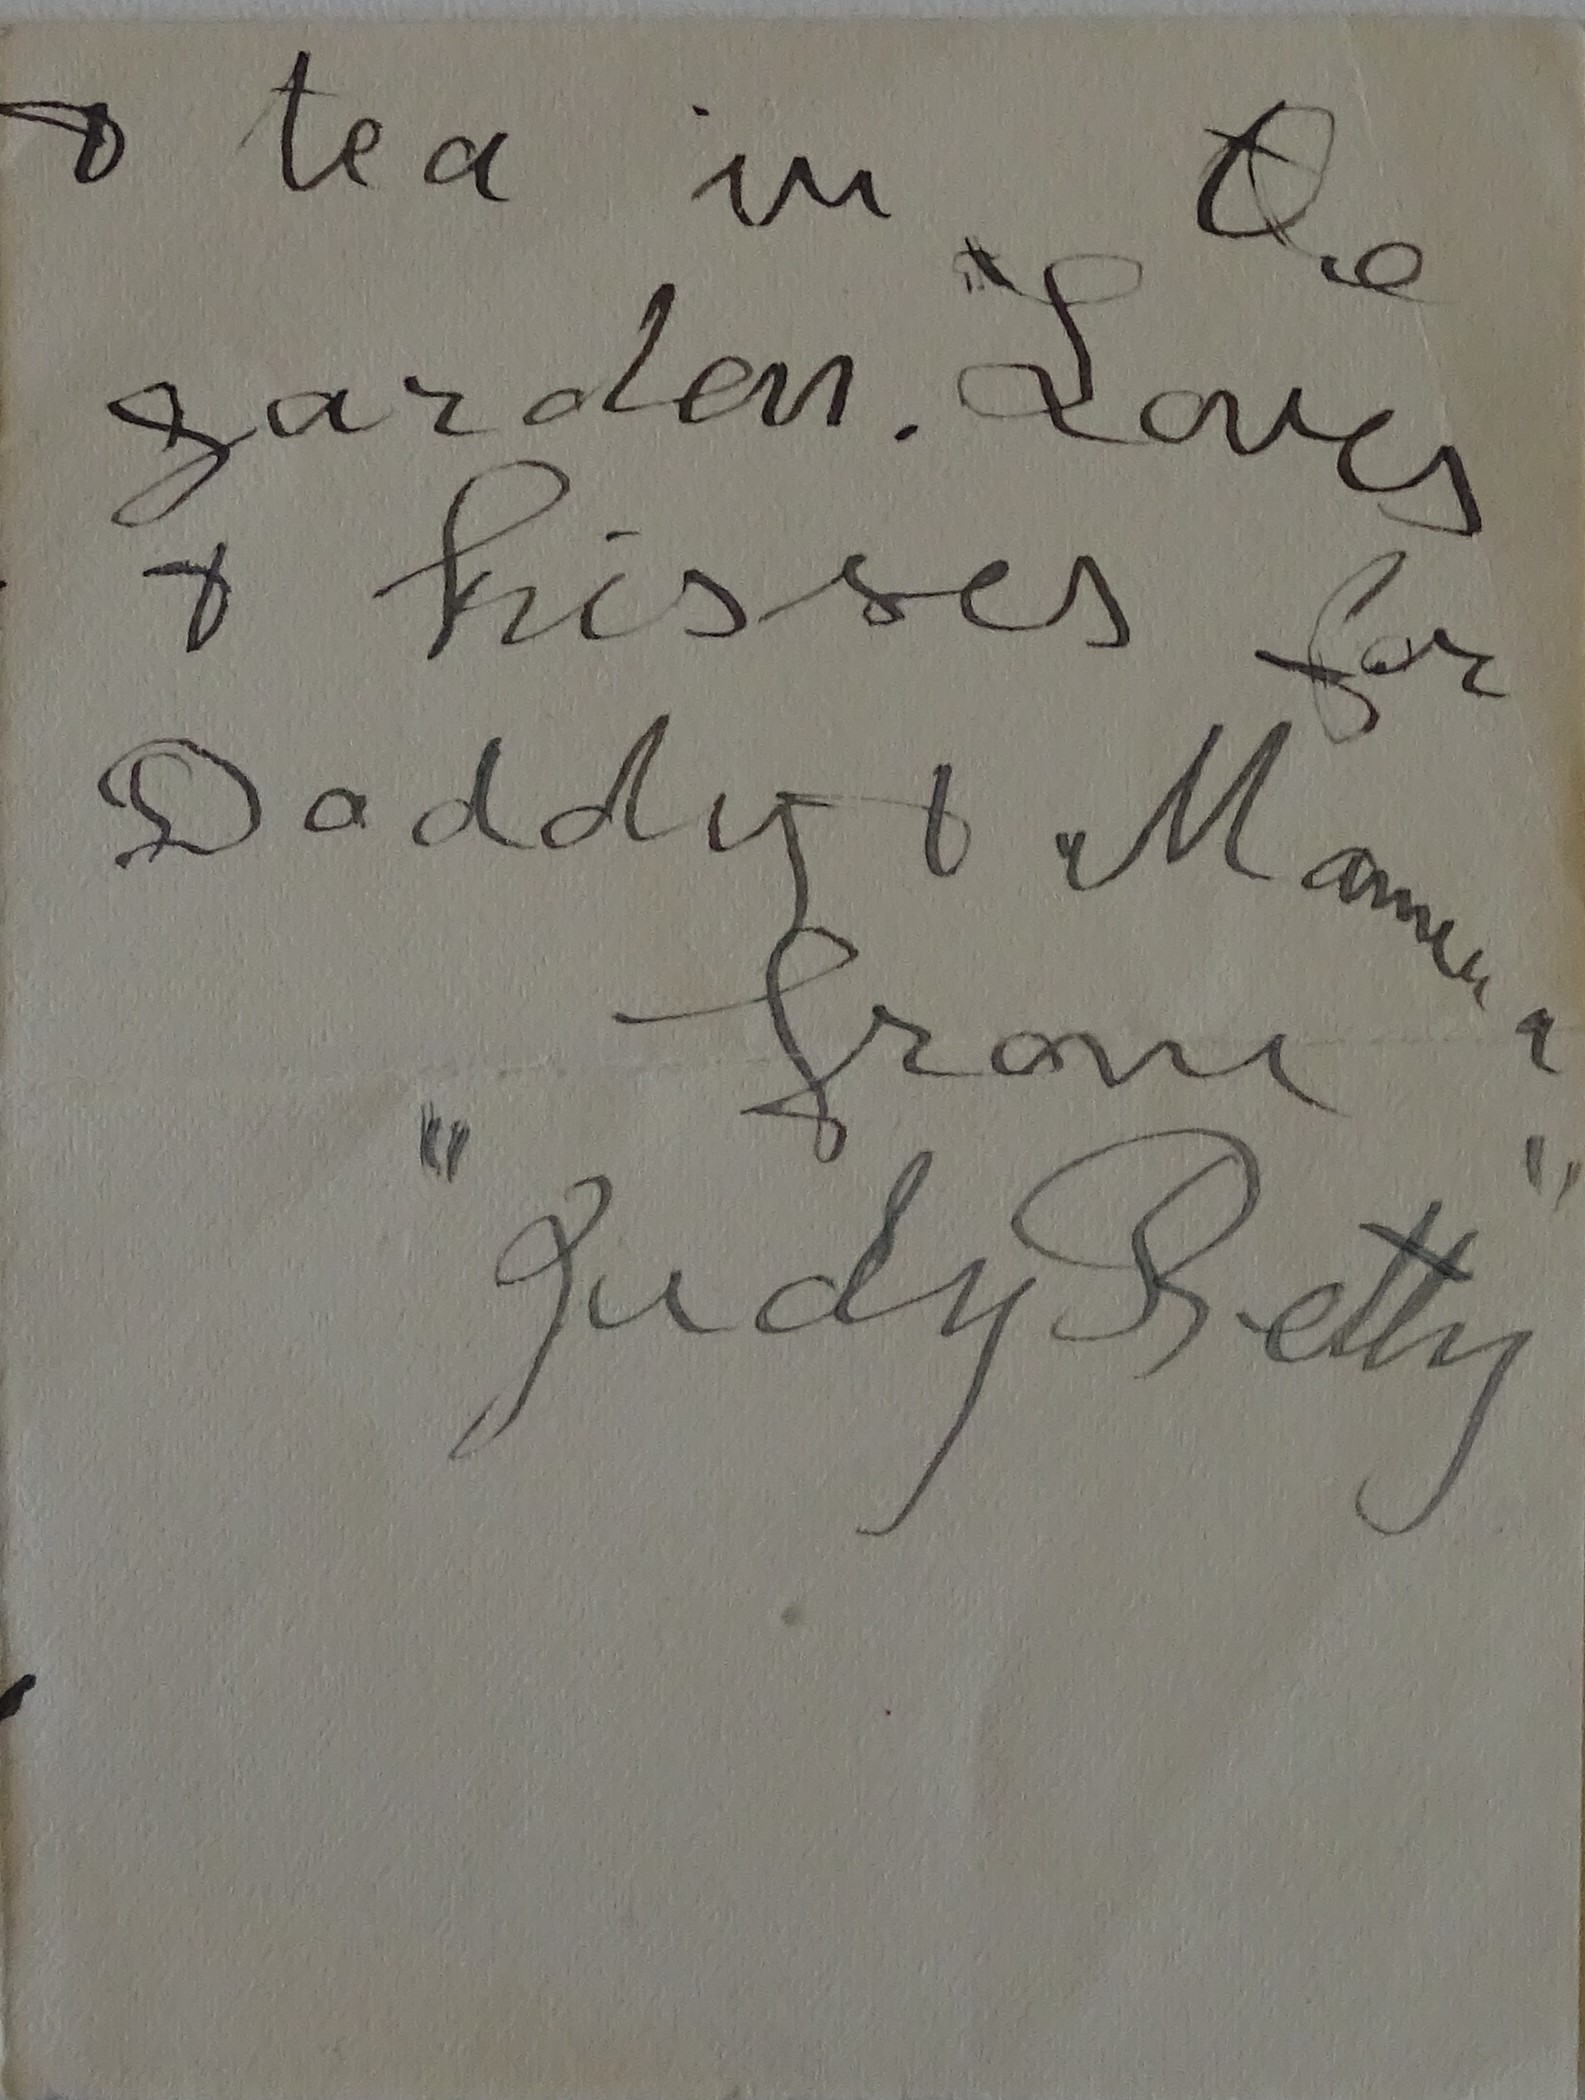 & tea in the
garden. "Loves
& kisses for
Daddy & "Mamma
from
"Judy Pretty"